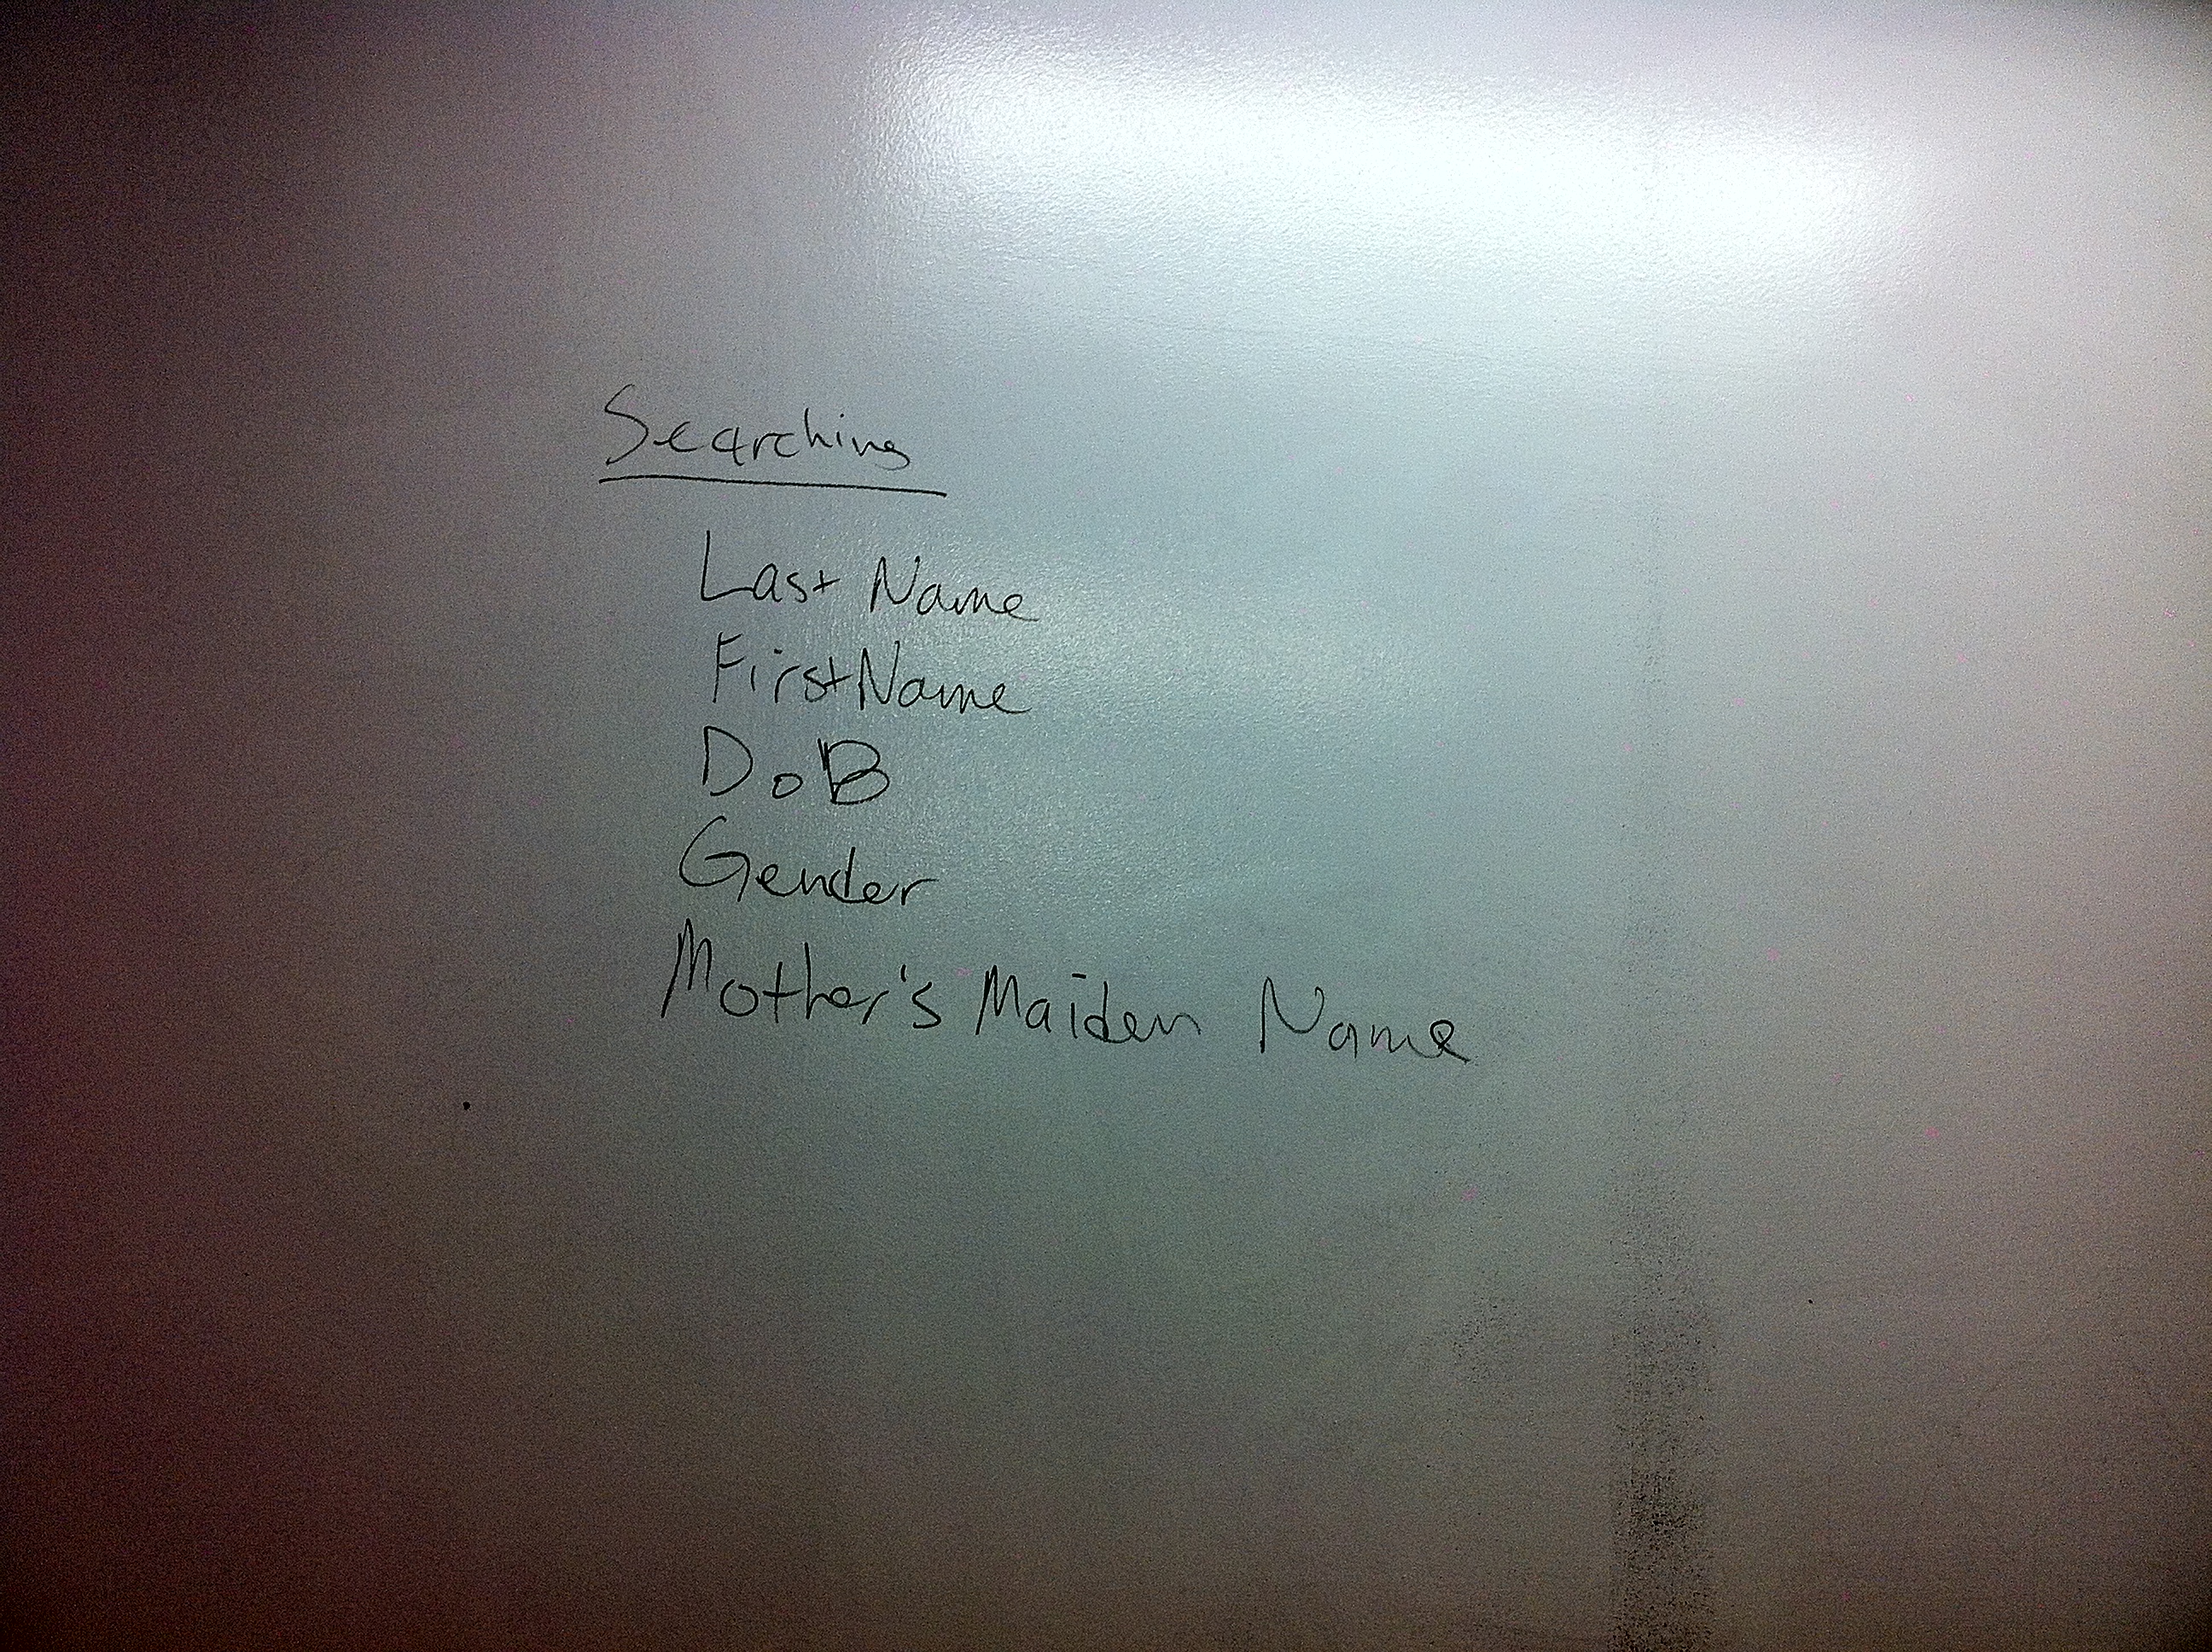 Searching
Last Name
First Name
DoB
Gender
Mother's Maiden Name